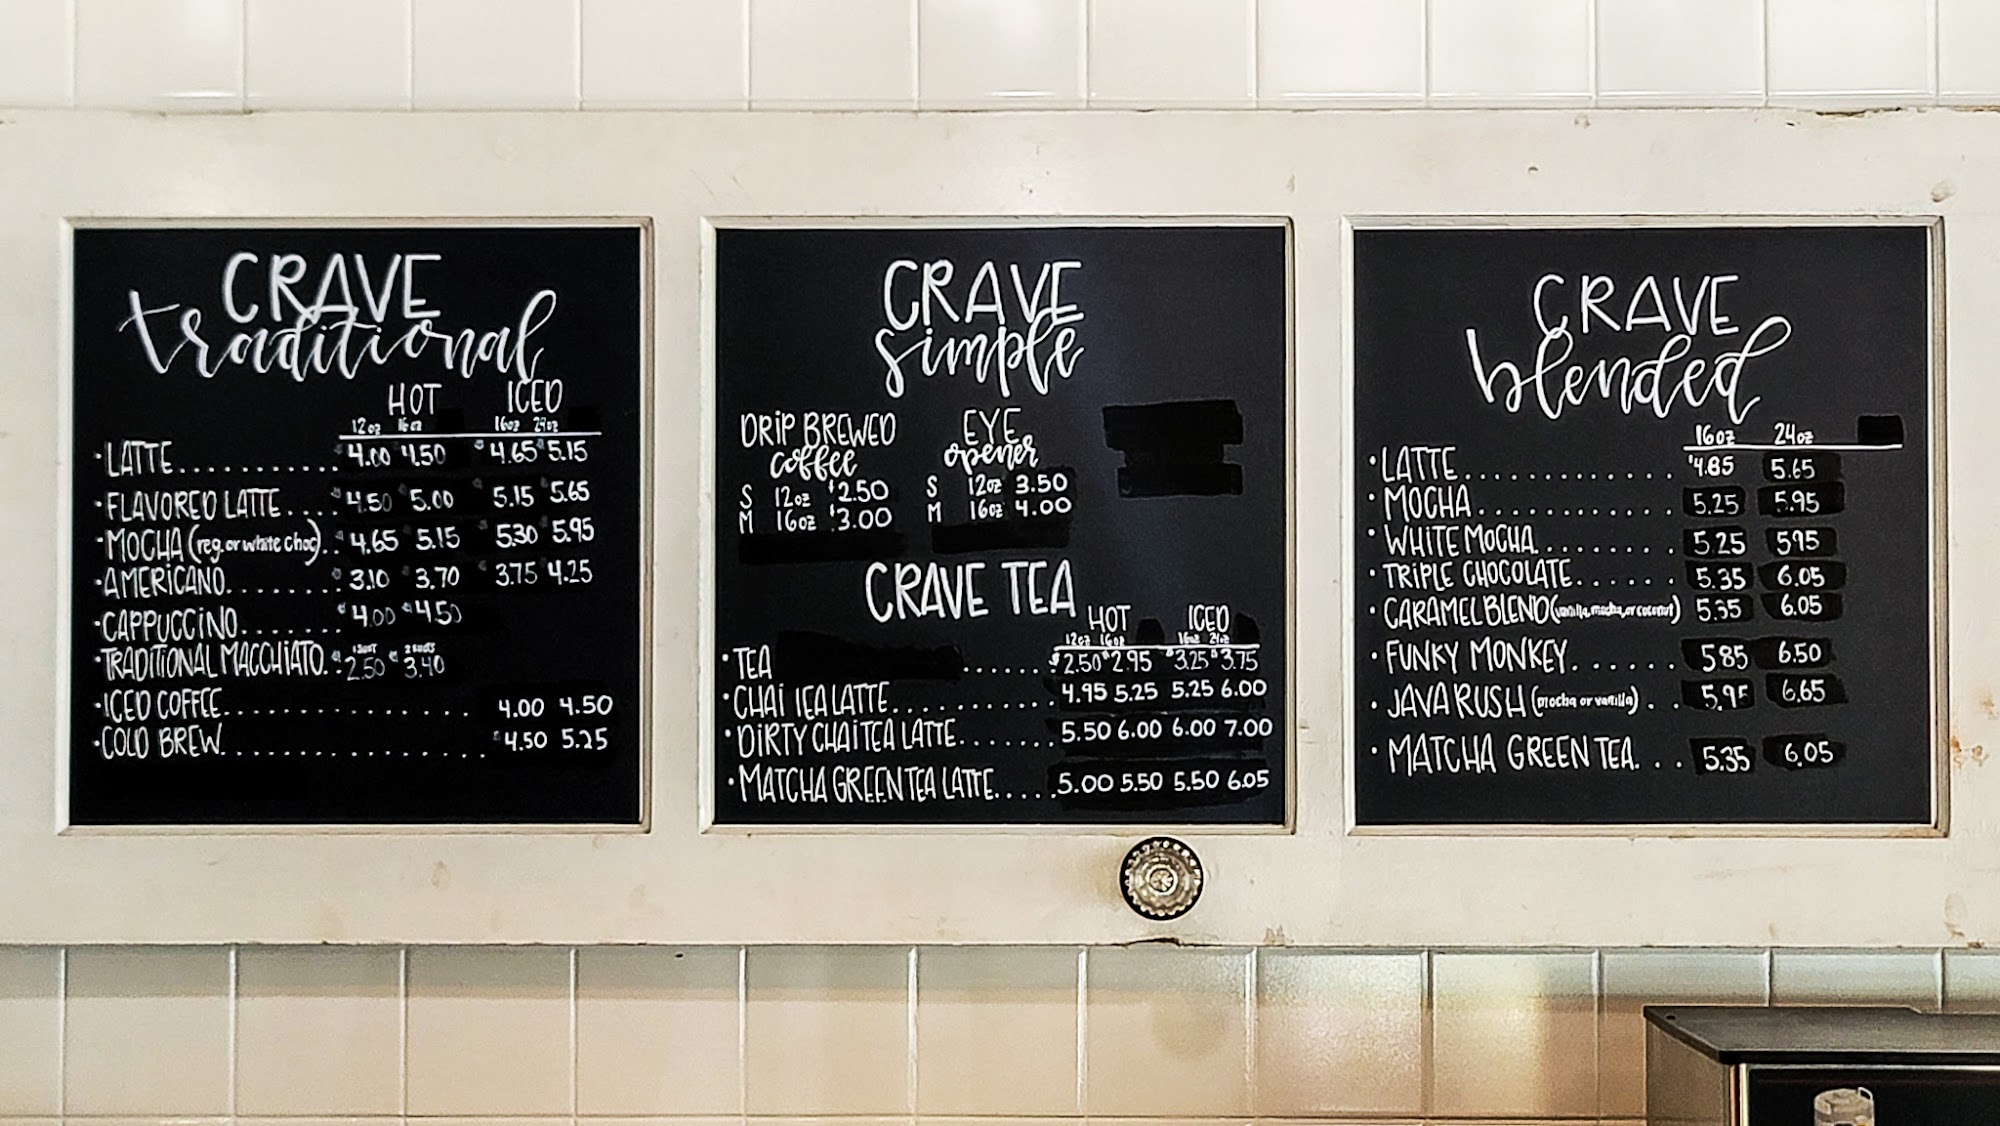 CRAVE
traditional
HOT ICED
12oz 16oz 16oz 24oz
•LATTE........... 4.00 4.50 $4.65 5.15
•FLAVORED LATTE.... $4.50 $5.00 5.15 $5.65
•MOCHA (reg. or white choc).. $4.65 5.15 5.30 5.95
•AMERICANO........ 3.10 $3.70 $3.75 4.25
•CAPPUCCINO....... $4.00 $4.50
•TRADITIONAL MACCHIATO. $2.50 $3.40
•ICED COFFEE................. 4.00 4.50
•COLD BREW.................. $4.50 5.25
CRAVE
simple
DRIP BREWED
coffee
S 12oz $2.50
M 16oz $3.00
EYE
opener
S 12oz 3.50
M 16oz 4.00
CRAVE TEA
HOT ICED
12oz 16oz 16oz 24oz
•TEA ...... $2.50 $2.95 $3.25 $3.75
•CHAI TEA LATTE........... 4.95 5.25 5.25 6.00
•DIRTY CHAI TEA LATTE....... 5.50 6.00 6.00 7.00
•MATCHA GREEN TEA LATTE..... 5.00 5.50 5.50 6.05
CRAVE
blended
16oz 24oz
•LATTE.............. $4.85 5.65
•MOCHA............. 5.25 5.95
•WHITE MOCHA......... 5.25 5.95
•TRIPLE CHOCOLATE...... 5.35 6.05
•CARAMEL BLEND (vanilla, mocha, or coconut) 5.35 6.05
•FUNKY MONKEY...... 5.85 6.50
•JAVA RUSH (mocha or vanilla) .. 5.95 6.65
•MATCHA GREEN TEA... 5.35 6.05